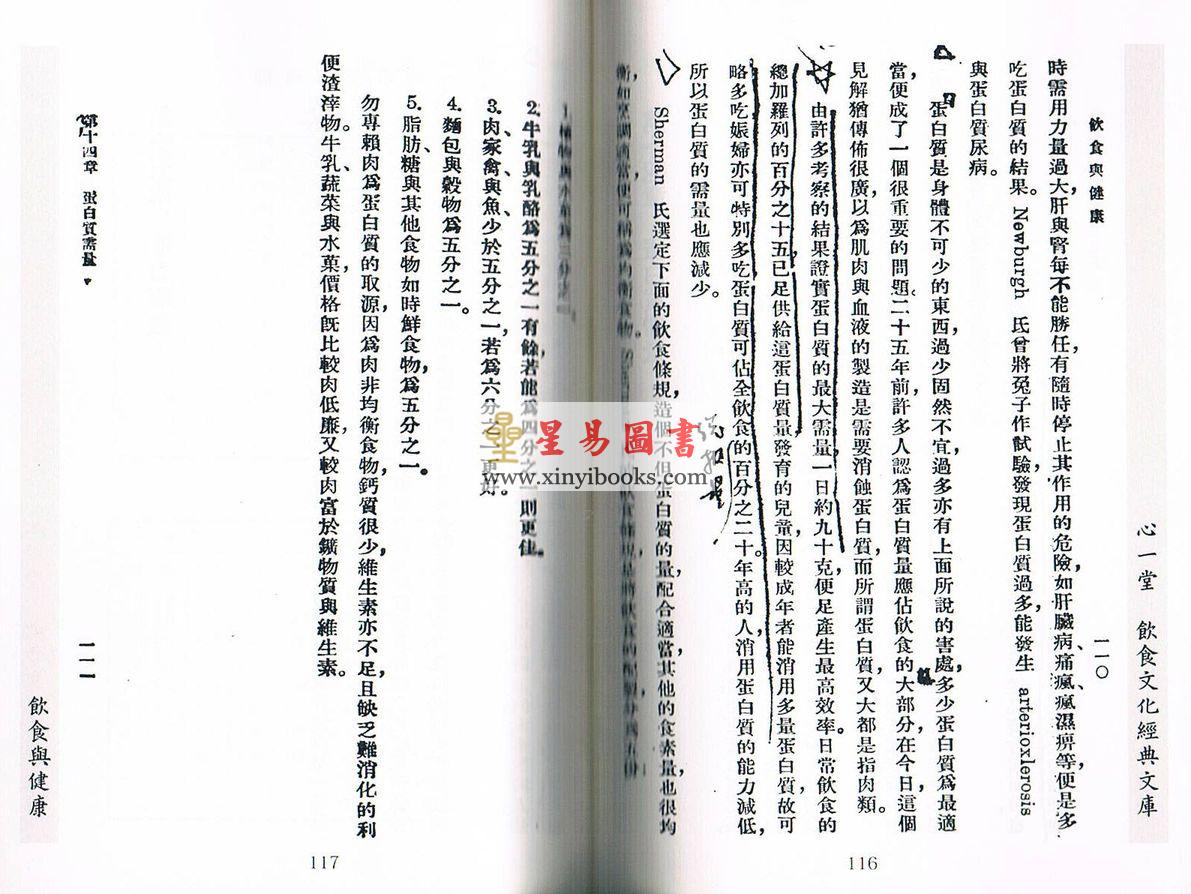 心一堂 飲食文化經典文庫
飲食與健康
一一〇
時需用力量過大，肝與腎每不能勝任，有隨時停止其作用的危險，如肝臟病、痛瘋、瘋濕痹等，便是多
吃蛋白質的結果。Newburgh 氏曾將兔子作試驗，發現蛋白質過多，能發生 arterioxlerosis
與蛋白質尿病。
蛋白質是身體不可少的東西，過少固然不宜，過多亦有上面所說的害處，多少蛋白質爲最適
當，便成了一個很重要的問題。二十五年前，許多人認爲蛋白質量應佔飲食的大部分，在今日，這個
見解猶傳佈很廣，以爲肌肉與血液的製造是需要消蝕蛋白質，而所謂蛋白質，又大都是指肉類。
由許多考察的結果，證實蛋白質的最大需量，一日約九十克，便足產生最高效率。日常飲食的
總加羅列的百分之十五，已足供給這蛋白質量，發育的兒童，因較成年者能消用多量蛋白質，故可
略多吃，娠婦亦可特別多吃，蛋白質可佔全飲食的百分之二十。年高的人，消用蛋白質的能力減低，
所以蛋白質的需量也應減少。
Sherman 氏選定下面的飲食條規，造個不但蛋白質的量配合適當，其他的食素量也很均
衡，如烹調適當，便可稱爲均衡食物。
116
2. 牛乳與乳酪爲五分之一有餘，若能爲四分之一則更佳。
3. 肉、家禽與魚少於五分之一，若爲六分之一更好。
4. 麵包與穀物爲五分之一。
5. 脂肪、糖與其他食物如時鮮食物，爲五分之一。
勿專賴肉爲蛋白質的取源，因爲肉非均衡食物，鈣質很少，維生素亦不足，且缺乏難消化的利
便渣滓物。牛乳、蔬菜與水菓，價格既比較肉低廉，又較肉富於鑛物質與維生素。
第十四章 蛋白質需量
一一一
飲食與健康
117
星易圖書
www.xinyibooks.com